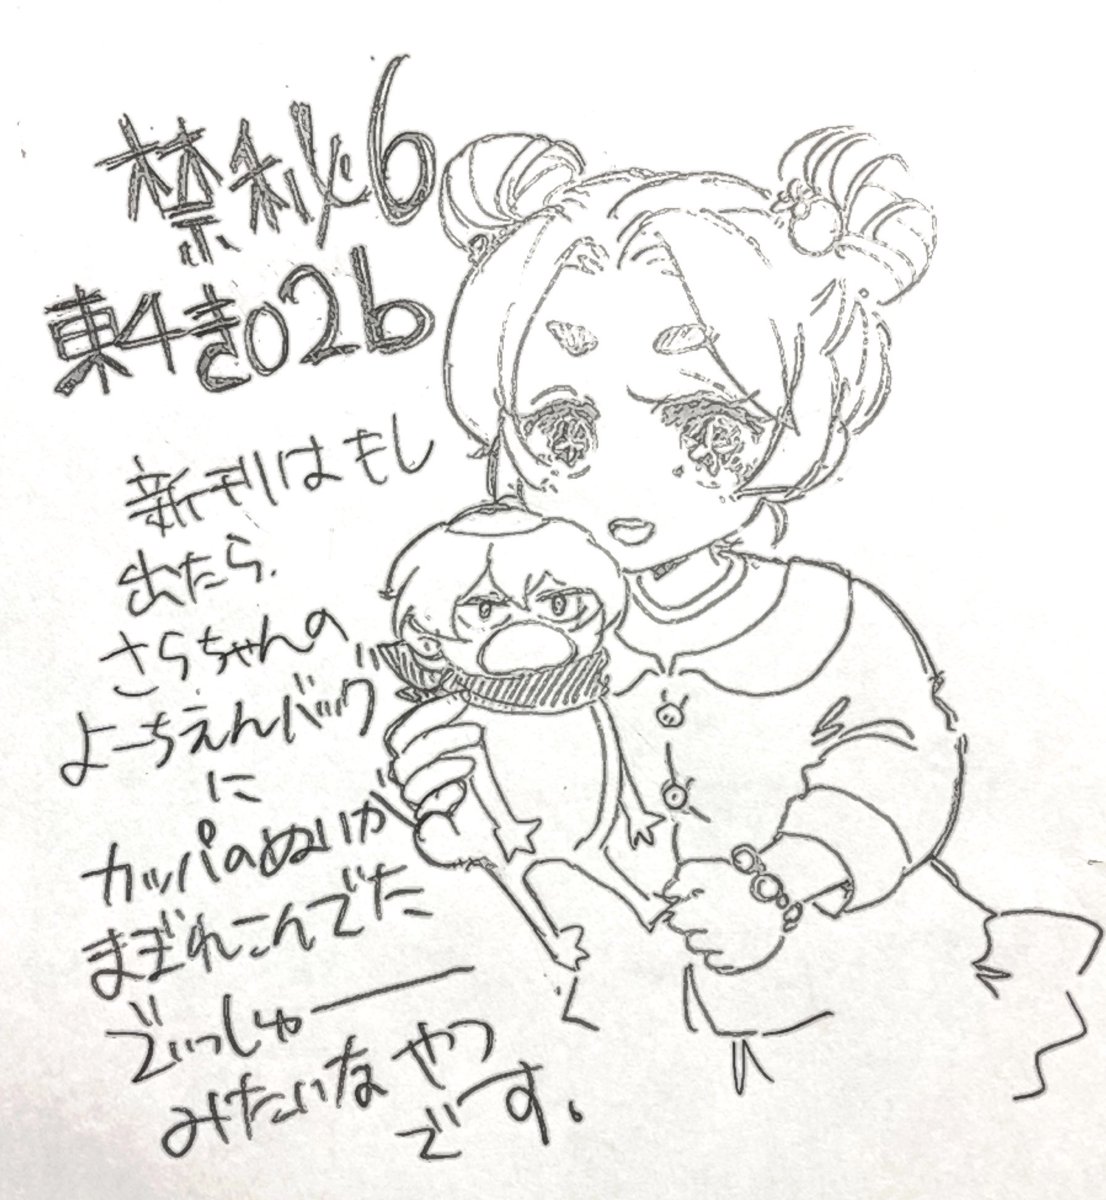 禁秋6
東4き02b
新刊はもし
出たら、
さらちゃんの
よーちえんバック
に
カッパのぬいが
まぎれこんでた
でぃっしゅー
みたいなやつ
です。